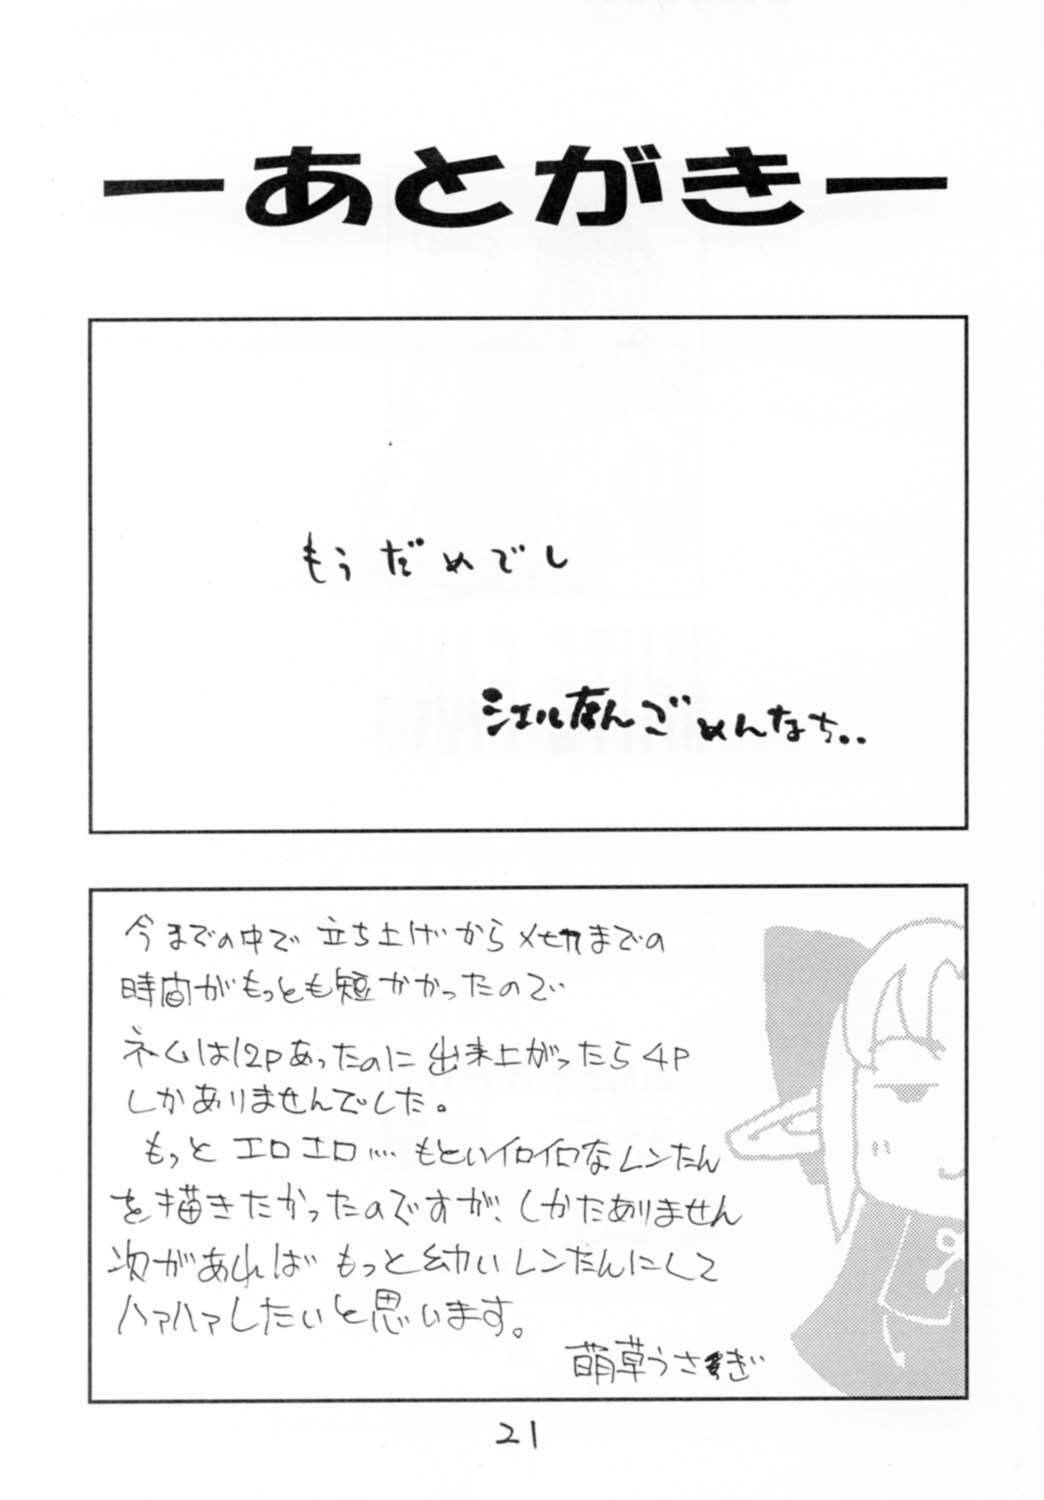 ーあとがきー
もうだめでし
シエルたんごめんなち..
今までの中で立ち上げからメセカまでの
時間がもっとも短かかったので
ネムは12Pあったのに出来上がったら4P
しかありませんでした。
もっとエロエロ…もといイロイロなレンたん
を描きたかったのですが、しかたありません
次があればもっと幼いレンたんにして
ハァハァしたいと思います。
萌草うさぎ
21